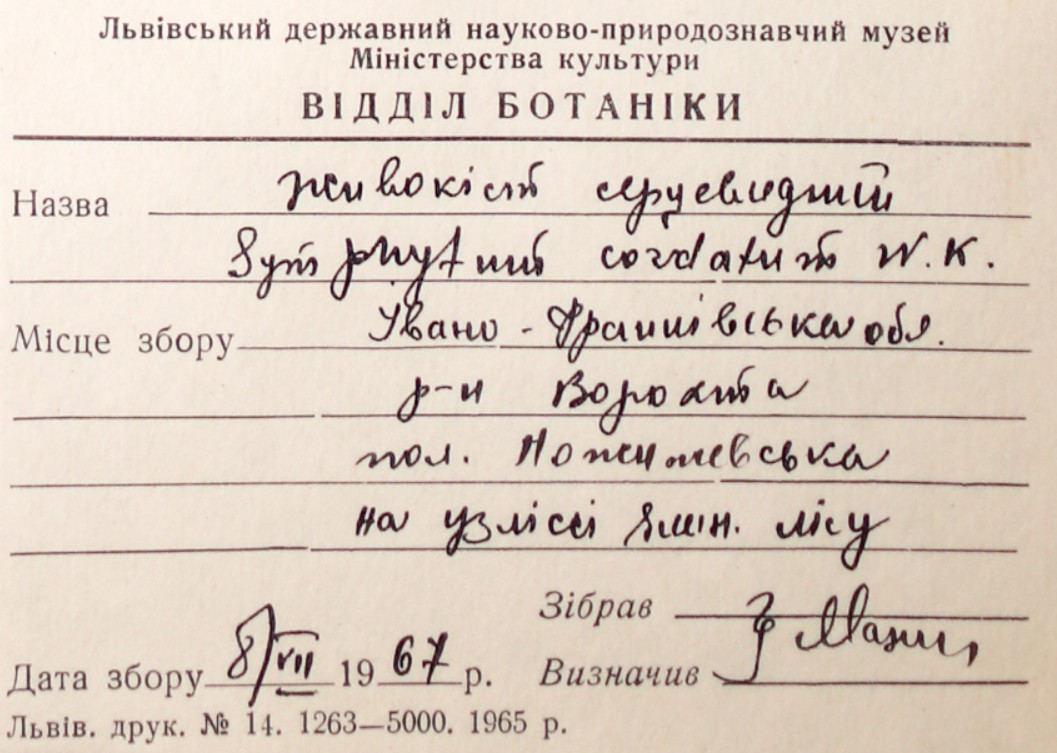 Львівський державний науково-природознавчий музей
Міністерства культури
ВІДДІЛ БОТАНІКИ
Назва живокіст серцевидний
Symphytum cordatum W. K.
Місце збору Івано-Франківська обл.
р-н Ворохта
пол. Пожижевська
на узліссі ялин. лісу
Зібрав
Дата збору 8/VII 1967 р. Визначив
Львів. друк. № 14. 1263—5000. 1965 р.